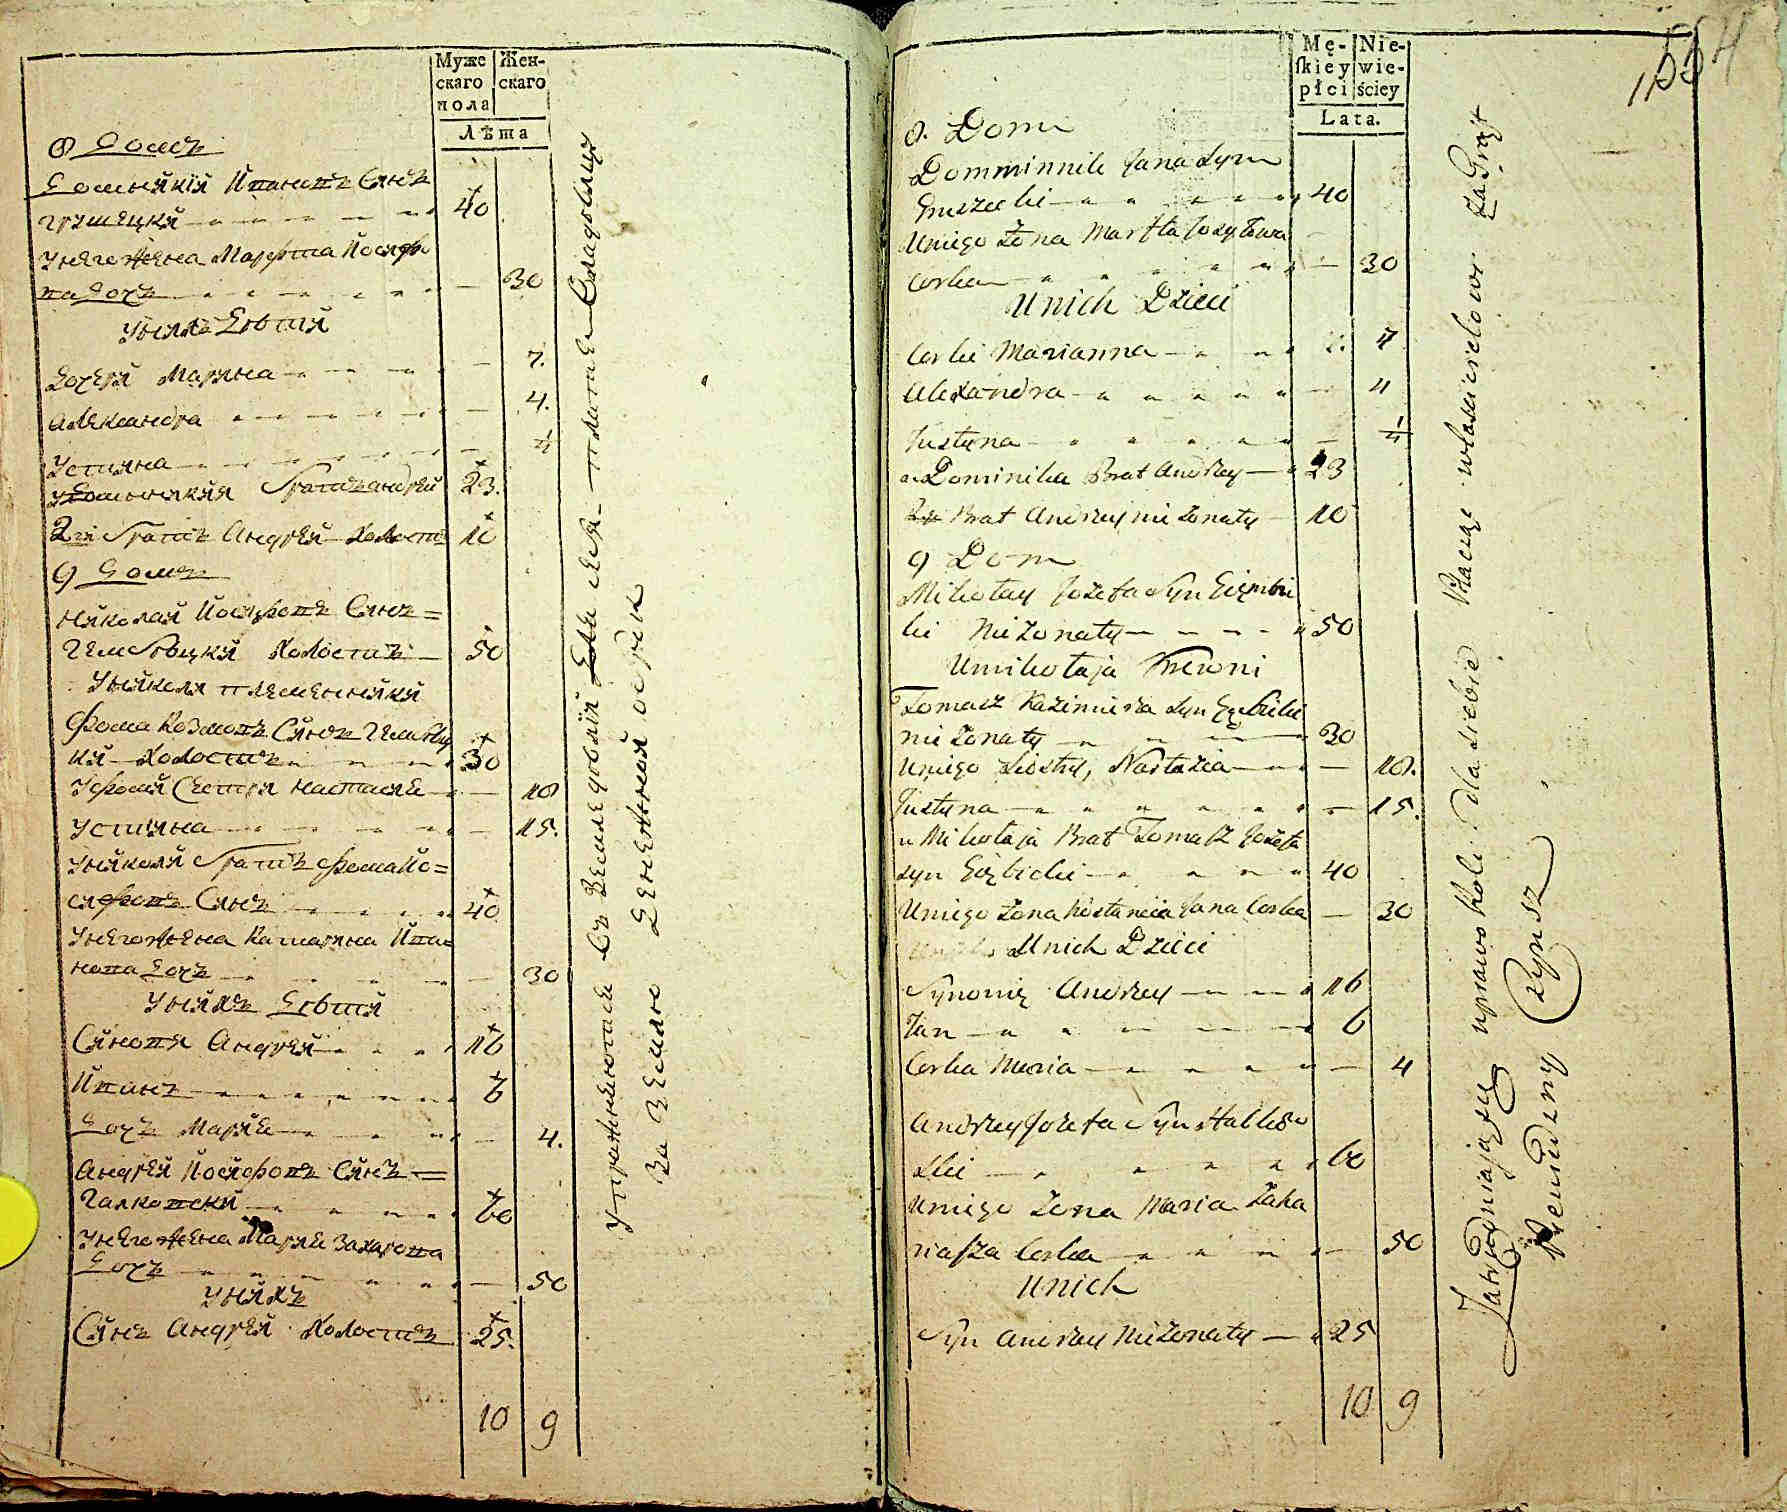 Муже
скаго
пола
Жен-
скаго
Лѣта
8 Домъ
Домѣникій Ивановъ Сынъ
Грушецкій 40
Унего Жена Марфта Иосиф
ва дочь 30
Унихъ Дѣти
Дочери Марьяна 7.
Александра 4.
Устина 1/4
УДоминикия братъ андрей 23.
2й братъ Андрей Холостъ 10
9 Домъ
Николай Иосифовъ Сынъ
Гембицкий Холостъ 50
Уникола племенники
Фома Козмовъ Сынъ Гембиц
кий Холостъ 30
Уфомы Сестры Настасия 18
Устина 15.
Уникола братъ фома Ио=
сифовъ Сынъ 40
Унего Жена Катарина Ива=
нова Дочь 30
Унихъ Дѣти
Синовя Андрей 16
Иванъ 6
Дочь Мария 4.
Андрей Иосифовъ Синъ
Галковский 60
Унего Жена Мария Захарова
Дочь 50
Унихъ
Синъ Андрей Холостъ 25.
10 9
Упражняются Въ Земледѣлии Для себя платя Владѣльцу
За Землю Денежный Оброк
Mę-
ſkiey
płci
Nie-
wie-
ściey
Lata.
1554
8. Dom
Domminnik Jana Syn
Gruszecki 40
Uniego Żona Marfta Jozefowa
Corka 30
Unich Dzieci
Corki Marianna 7
Alexandra 4
Justyna 1/4
u Dominika Brat Andrzey 23
2gi Brat Andrzey nie Żonaty 10
9 Dom
Mikołay Jozefa Syn Gięmbic
ki nie Żonaty 50
U mikołaja Krewni
Tomasz Kazimierza Syn Gębicki
nie Żonaty 30
Uniego Siostry, Nastazia 18.
Justyna 15.
u Mikołaja Brat Tomasz Jozefa
Syn Giębicki 40
Uniego Żona Kostancia Jana Corka 30
Unich Dzieci
Synowie Andrzey 16
Jan 6
Corka Maria 4
Andrzey Jozefa Syn Halkow
ski 60
Uniego Żona Maria Zaha
riaſza Corka 50
Unich
Syn Andrzey nie Żonaty 25
10 9
Zatrudniają się uprawą Roli dla siebie Płacąc właścicielowi za Grąt
Pieniężny Czynsz